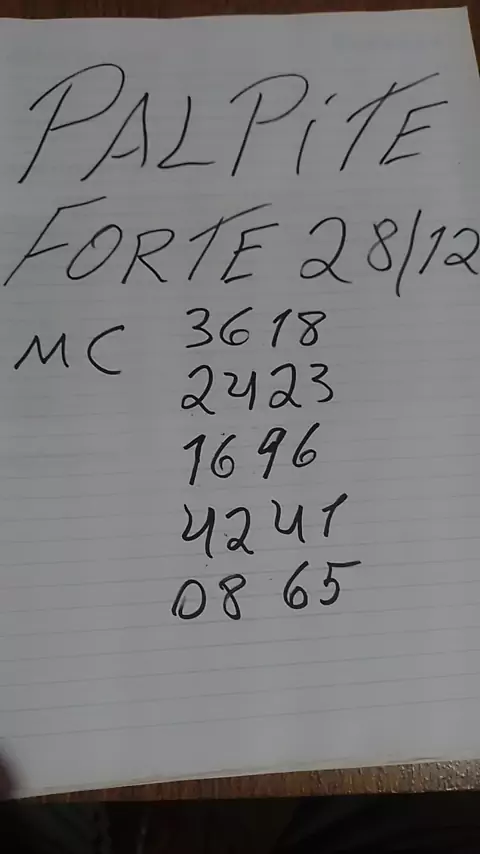 PALPiTE
FORTE 28/12
MC 3618
2423
1696
4241
0865